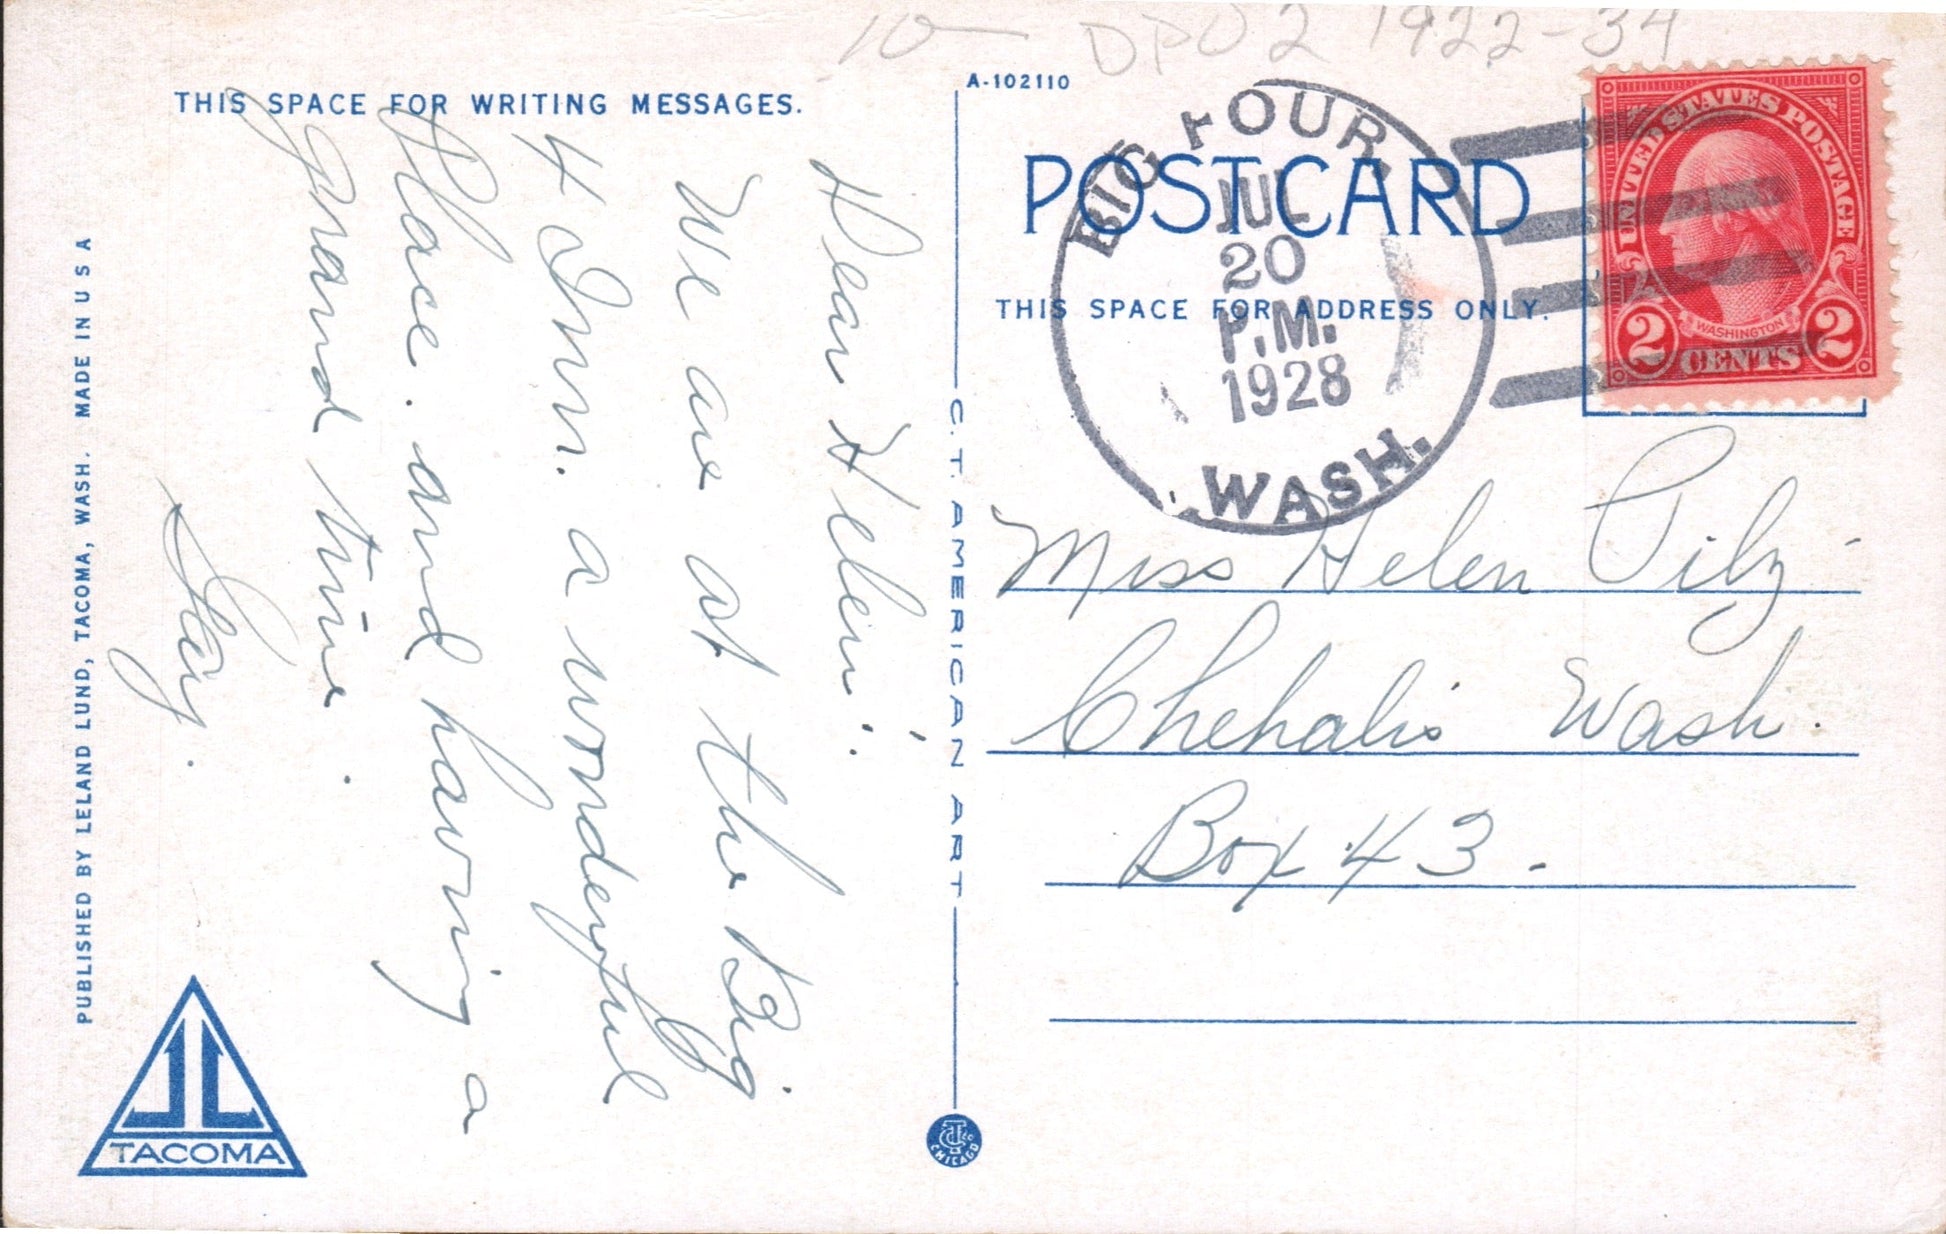 10— DPO2 1922-34
THIS SPACE FOR WRITING MESSAGES.
A-102110
POSTCARD
THIS SPACE FOR ADDRESS ONLY.
BIG FOUR,
JUL
20
P.M.
1928
WASH.
UNITED STATES POSTAGE
WASHINGTON
2 CENTS 2
Dear Helen:
We are at the Big
4 Inn. a wonderful
place. and having a
grand time.
Miss Helen Pilz
Chehalis Wash.
Box 43.
C.T. AMERICAN ART
CTCO
CHICAGO
PUBLISHED BY LELAND LUND, TACOMA, WASH. MADE IN U S A
LL
TACOMA